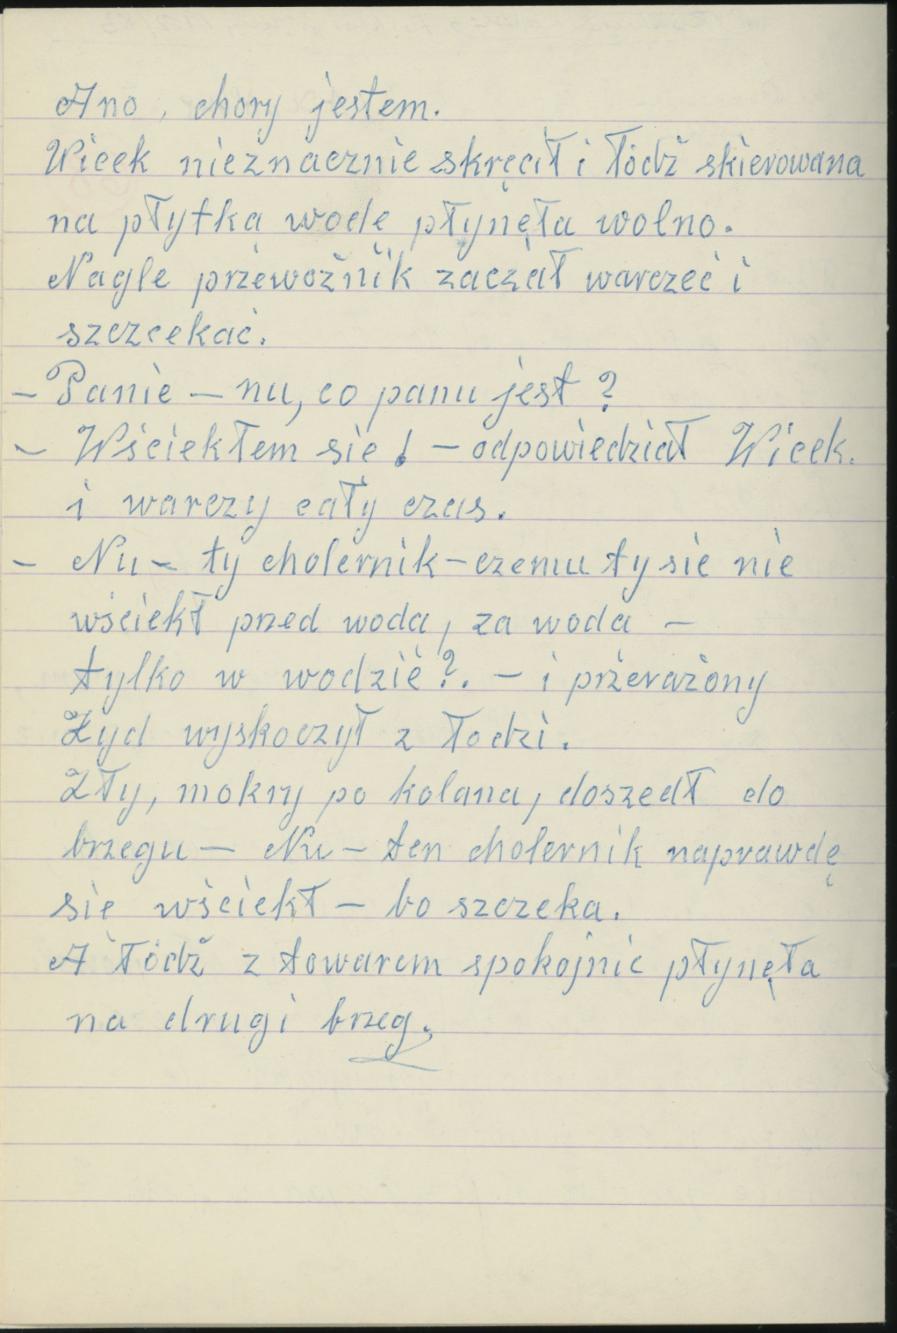 Ano, chory jestem.
Wicek nieznacznie skręcił i łódź skierowana
na płytka wode płynęła wolno.
Nagle przewoźnik zaczał warczeć i
szczcekać.
- Panie - nu, co panu jest?
- Wściekłem sie! - odpowiedział Wicek.
i warczy cały czas.
- Nu - ty cholernik - czemu ty sie nie
wściekł przed woda, za woda -
tylko w wodzie?. - i przerażony
Żyd wyskoczył z łodzi.
Zły, mokry po kolana, doszedł do
brzegu - Nu - ten cholernik naprawdę
sie wściekł - bo szczeka.
A łódź z towarem spokojnie płynęła
na drugi brzeg.